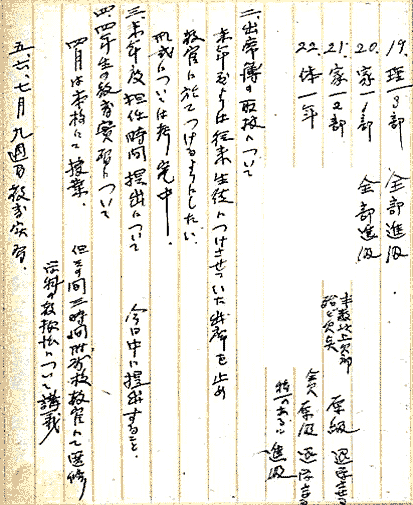 19. 理3部 全部進級
20. 家1部 全部進級
21. 家2部 半数以上欠部 殆ど欠矢 原級 退学させる
22. 体一年 全欠 原級 退学
特一のある 進級
二、出席簿の取扱について
本年度よりは従来生徒につけさせていた出席を止め
教官に於てつけるようにしたい。
形式については考究中。
三、本年度担任時間提出について 今日中に提出すること。
四、四年生の教育実習について
四月は本校にて授業。
但その間二時間附属校教官にて選修
各科の教授法について講義
五、六、七月九週間教育実習。